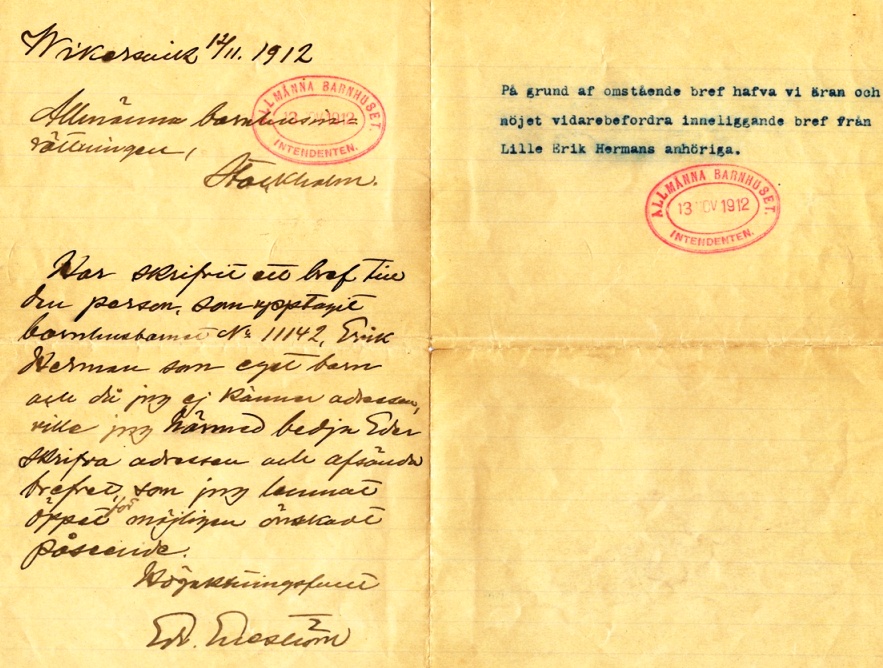 Wikersvik 12/11. 1912
Allmänna barnhusin=
rättningen,
Stockholm.
ALLMÄNNA BARNHUSET.
13 NOV 1912
INTENDENTEN.
Har skrifvit ett bref till
den person, som upptagit
barnhusbarnet No 11142, Erik
Herman som eget barn
och då jag ej känner adressen,
ville jag härmed bedja Eder
skrifva adressen och afsända
brefvet, som jag lemnat
öppet för möjligen önskadt
påseende.
Högaktningsfullt
Edv.
På grund af omstående bref hafva vi äran och
nöjet vidarebefordra inneliggande bref från
Lille Erik Hermans anhöriga.
ALLMÄNNA BARNHUSET.
13 NOV 1912
INTENDENTEN.